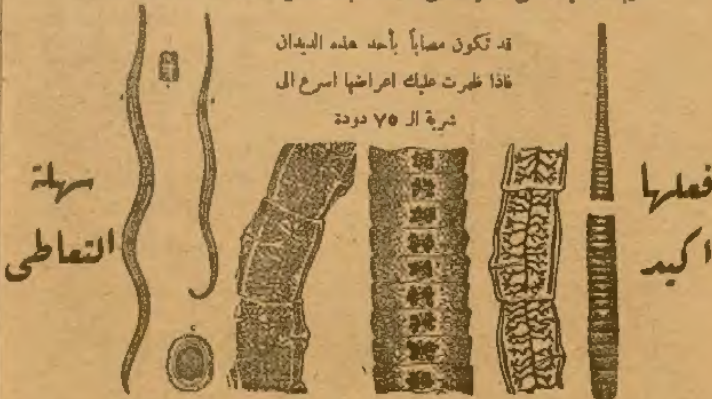 قد تكون مصاباً بأحد هذه الديدان
فاذا ظهرت عليك اعراضها اسرع الى
شربة الـ ٧٥ دودة
فعلها
اكيد
سهلة
التعاطى